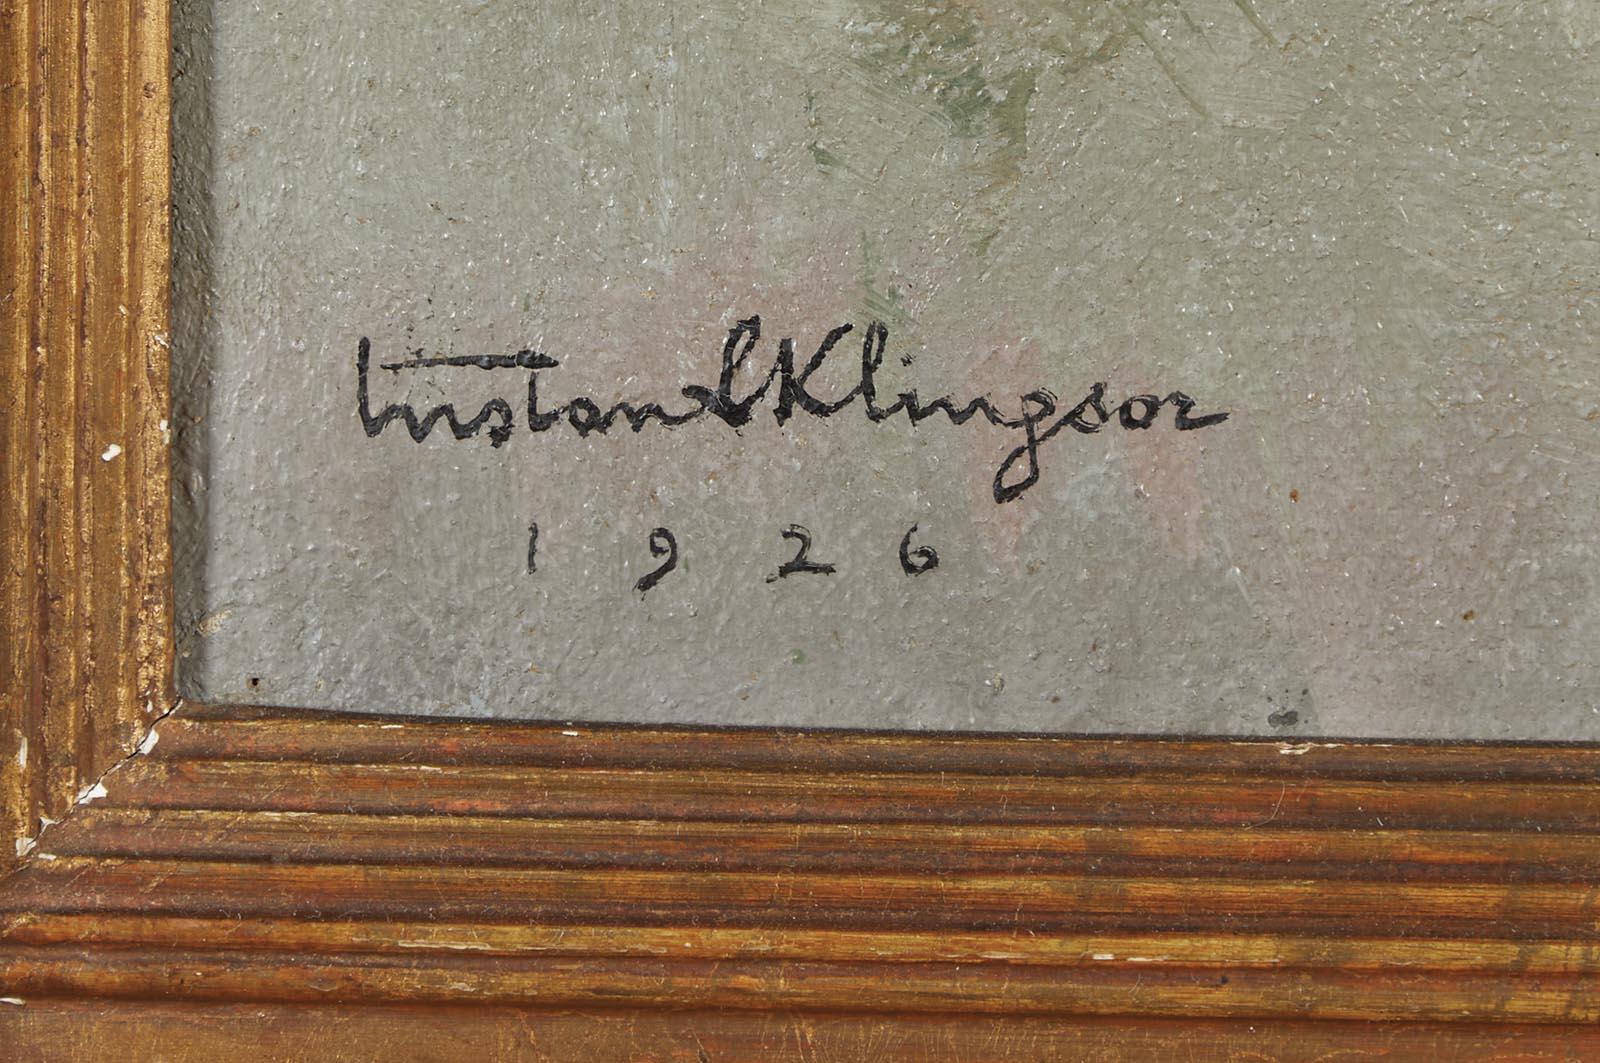 Tristan L Klingsor
1926